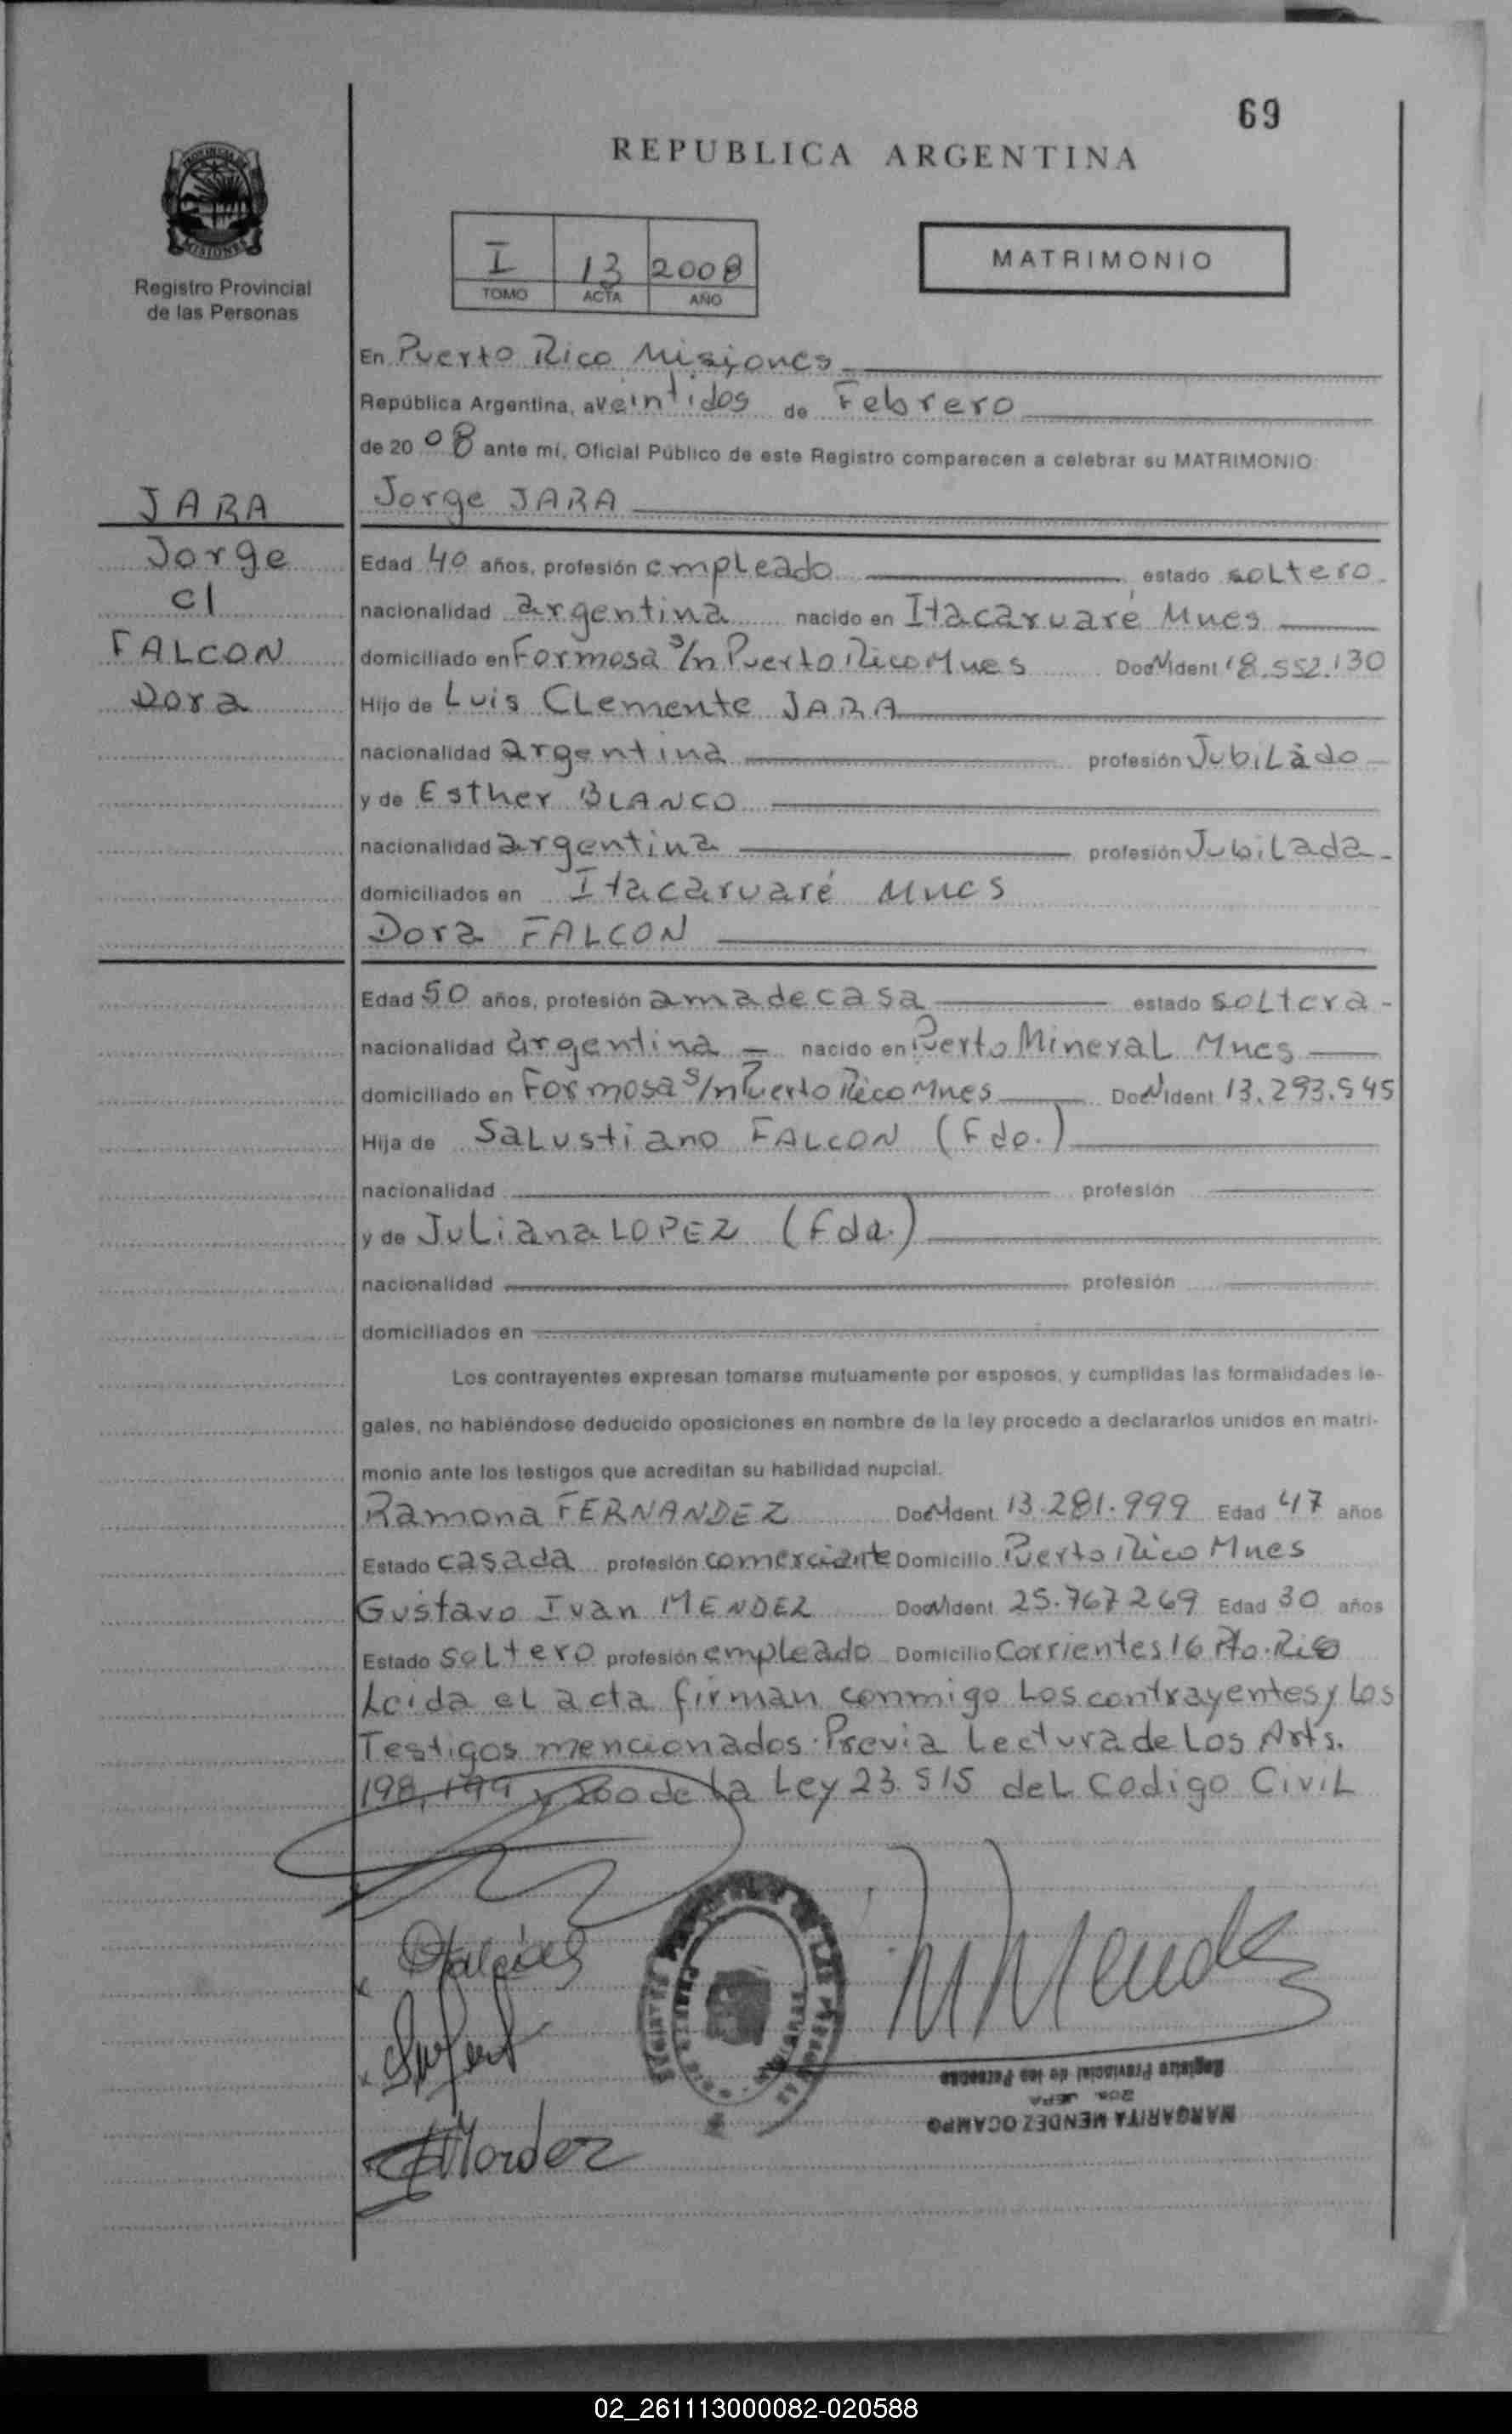 69
REPUBLICA ARGENTINA
PROVINCIA DE
MISIONES
Registro Provincial
de las Personas
I 13 2008
TOMO ACTA AÑO
MATRIMONIO
En Puerto Rico Misiones
República Argentina, a veintidos de Febrero
de 20 08 ante mí, Oficial Público de este Registro comparecen a celebrar su MATRIMONIO
JARA
Jorge
c/
FALCON
Dora
Jorge JARA
Edad 40 años, profesión empleado estado soltero
nacionalidad argentina nacido en Itacaruaré Mnes
domiciliado en Formosa s/n Puerto Rico Mnes Doc N Ident 18.552.130
Hijo de Luis Clemente JARA
nacionalidad argentina profesión Jubilado
y de Esther BLANCO
nacionalidad argentina profesión Jubilada
domiciliados en Itacaruaré Mnes
Dora FALCON
Edad 50 años, profesión ama de casa estado soltera
nacionalidad argentina nacido en Puerto Mineral Mnes
domiciliado en Formosa s/n Puerto Rico Mnes Doc N Ident 13.293.545
Hija de Salustiano FALCON (Fdo.)
nacionalidad profesión
y de Juliana LOPEZ (Fda.)
nacionalidad profesión
domiciliados en
Los contrayentes expresan tomarse mutuamente por esposos, y cumplidas las formalidades le-
gales, no habiéndose deducido oposiciones en nombre de la ley procedo a declararlos unidos en matri-
monio ante los testigos que acreditan su habilidad nupcial.
Ramona FERNANDEZ Doc N Ident 13.281.999 Edad 47 años
Estado casada profesión comerciante Domicilio Puerto Rico Mnes
Gustavo Ivan MENDEZ Doc N Ident 25.767.269 Edad 30 años
Estado soltero profesión empleado Domicilio Corrientes 16 Pto. Rico
Leida el acta firman conmigo los contrayentes y los
Testigos mencionados. Previa Lectura de los Arts.
198, 199 y 200 de la Ley 23.515 del Codigo Civil
MARGARITA MENDEZ OCAMPO
Registro Provincial de las Personas
02_261113000082-020588